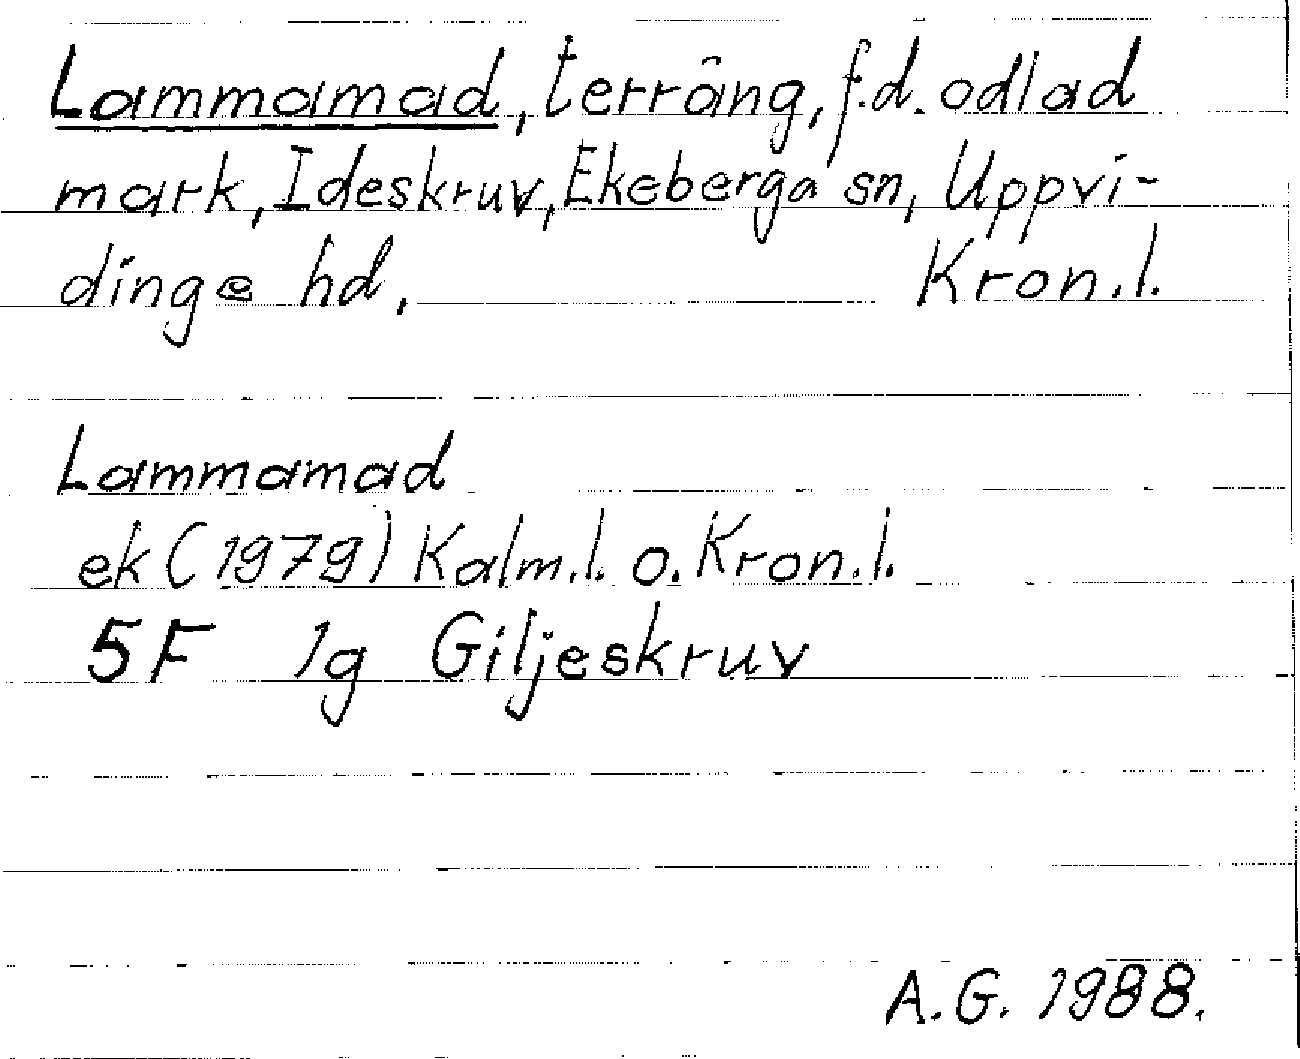 Lammamad, terräng, f.d. odlad
mark, Ideskruv, Ekeberga sn, Uppvi-
dinge hd, Kron.l.
Lammamad
ek (1979) Kalm.l. o. Kron.l.
5F 1g Giljeskruv
A.G. 1988.